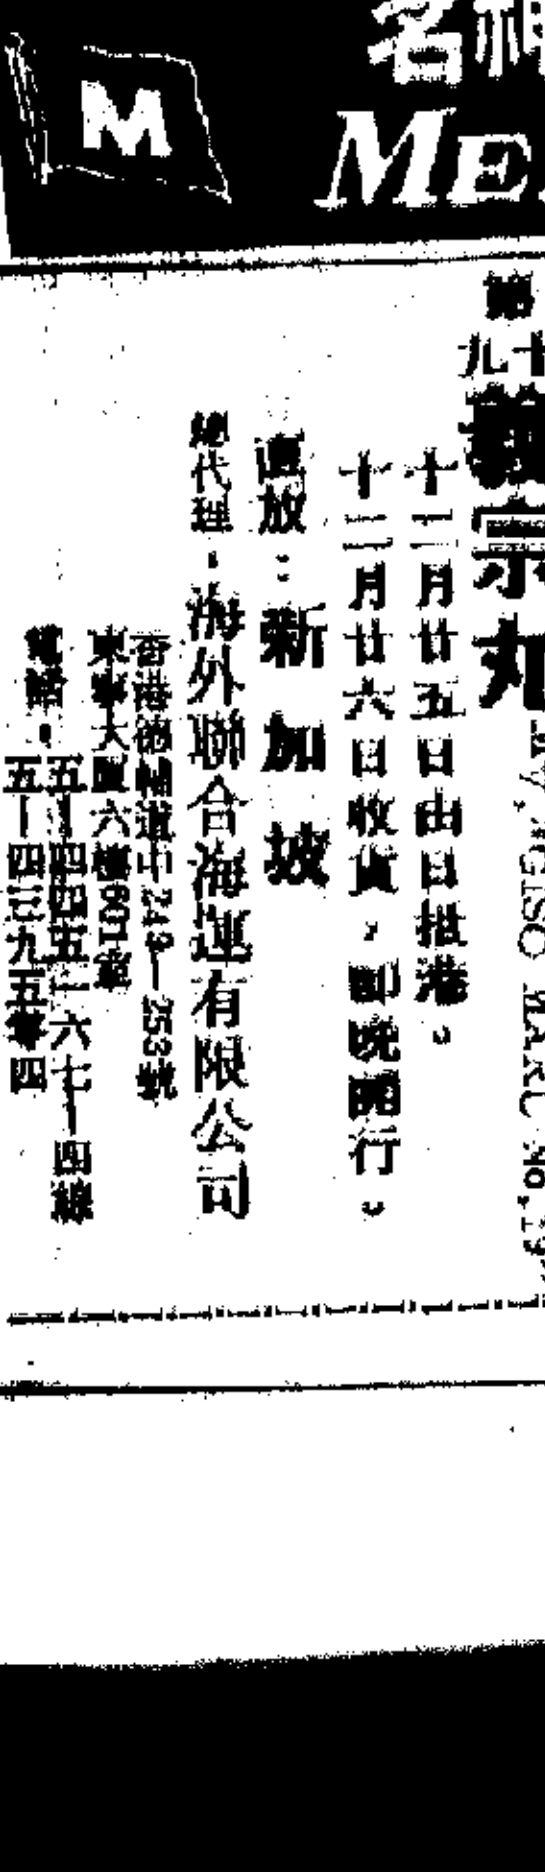 M
名神
ME
第十九義宗丸
MARU No.19
十二月廿五日由日抵港。
十二月廿六日收貨,即晚開行。
直放:新加坡
總代理:海外聯合海運有限公司
香港德輔道中249—253號
東寧大厦六樓601室
電話:五—四四五一六七—四線
五—四三九五零四